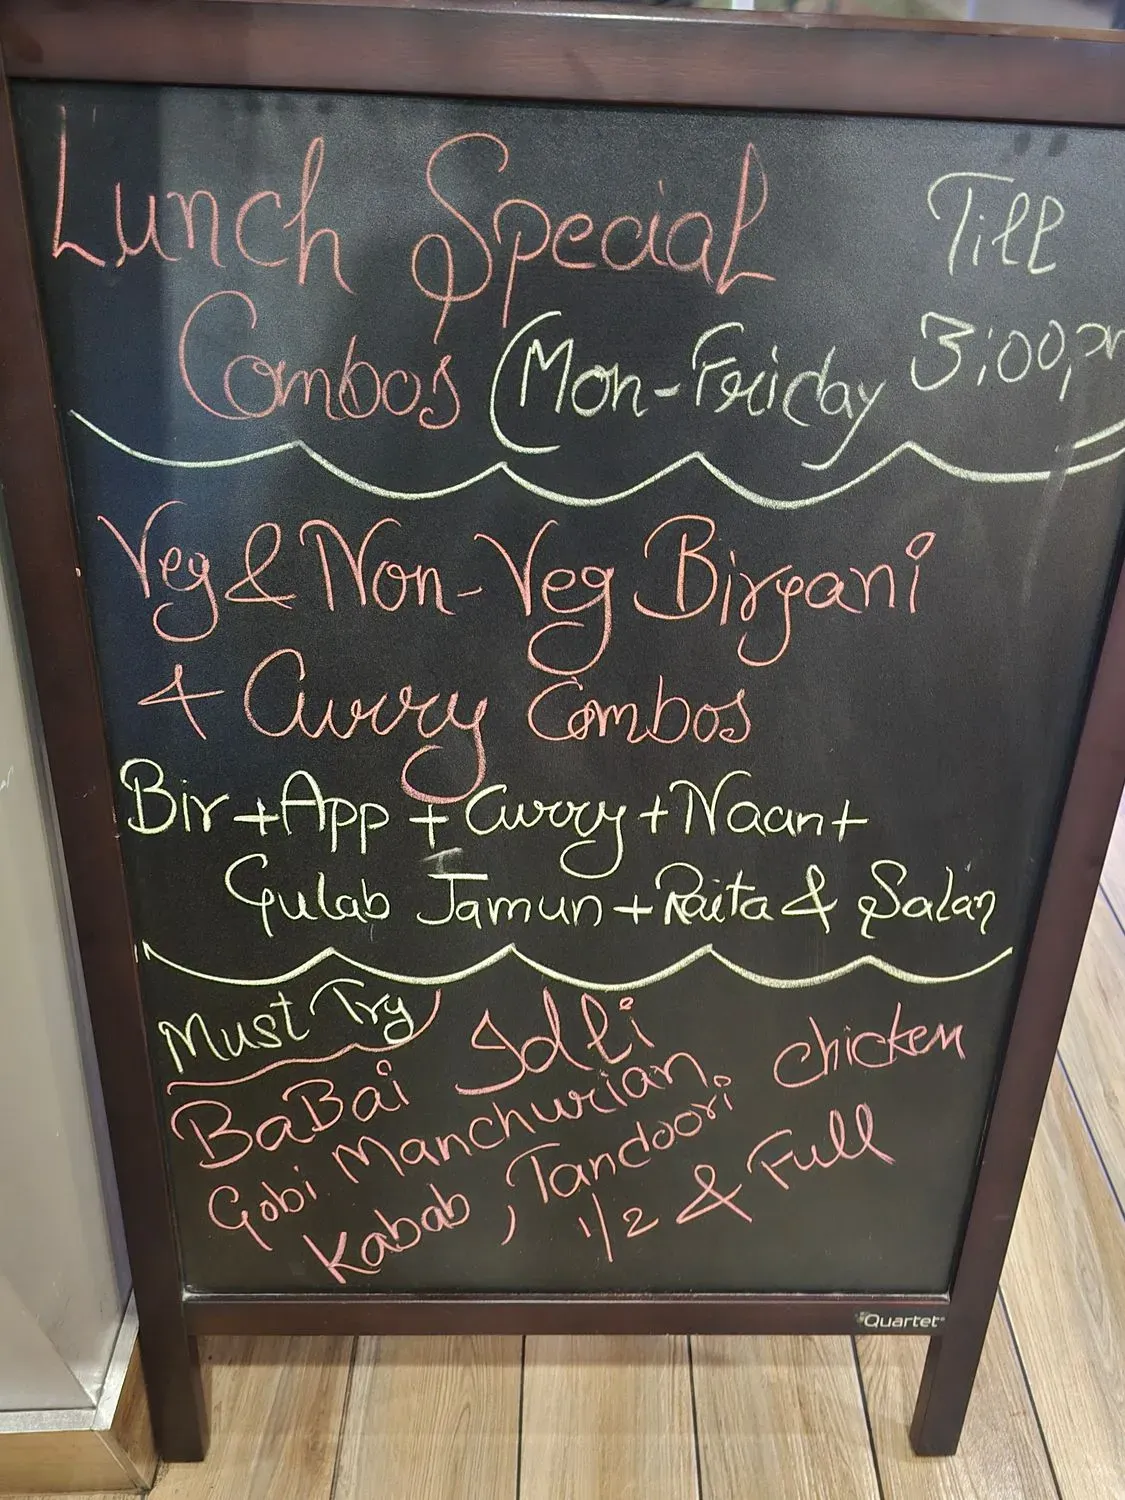 Lunch Special
Till
Combos (Mon-Friday 3:00pm)
Veg & Non-Veg Biryani
+ Curry Combos
Bir + App + Curry + Naan +
Gulab Jamun + Raita & Salan
Must Try
BaBai Idli
Gobi Manchurian,
Kabab, Tandoori chicken
1/2 & Full
Quartet